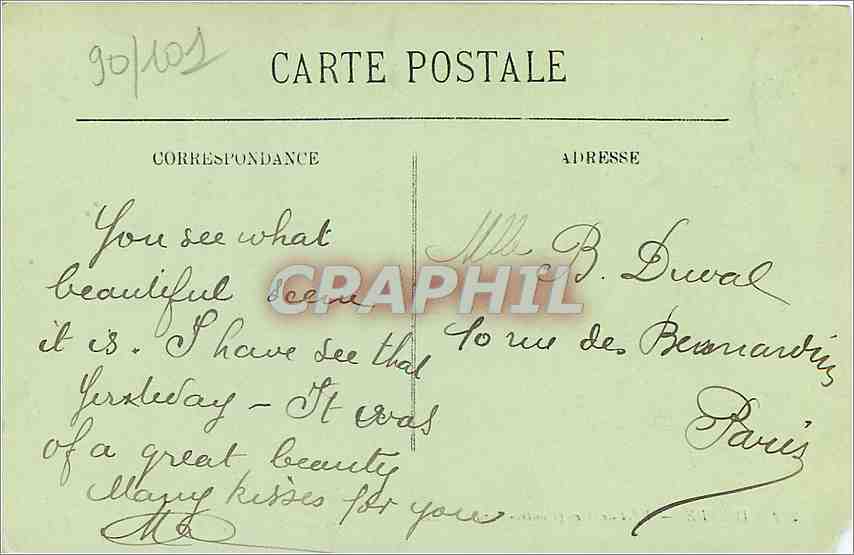 90/101
CARTE POSTALE
CORRESPONDANCE
ADRESSE
You see what
beautiful scene
it is. I have see that
Yersteday - It was
of a great beauty
Many kisses for you
Mlle B. Duval
10 rue des Bernardins
Paris
CPAPHIL